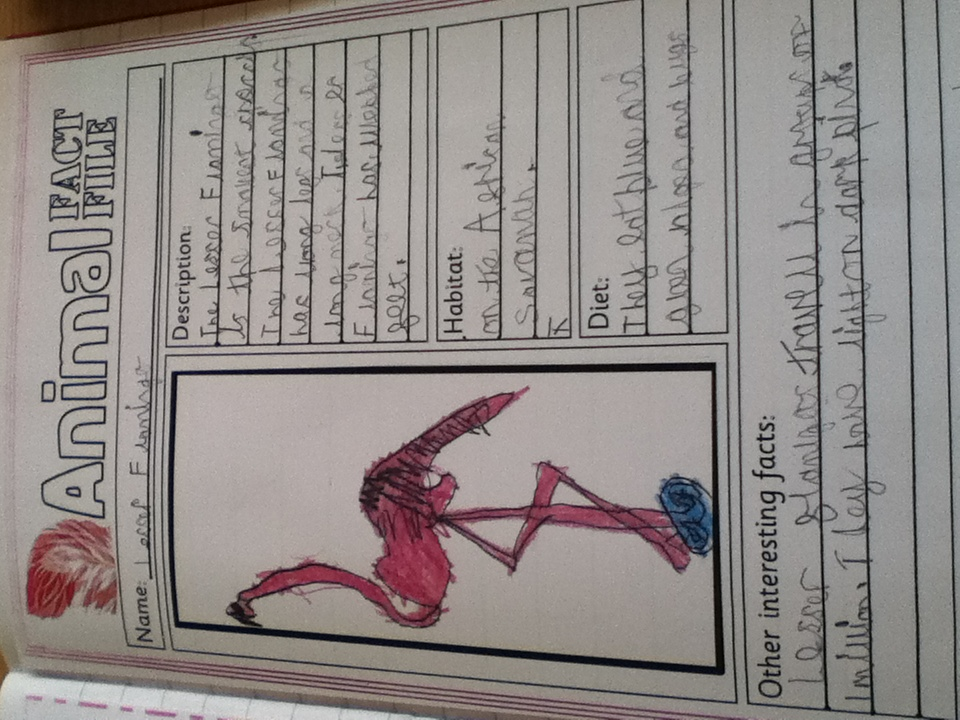 Animal FACT FILE
Name: Lesser Flamingo
Description:
The Lesser Flamingo
Is the smallest
The Lesser Flamingo
has long legs and a
long neck.
Flamingo has webbed
feet.
Habitat:
on the African
Savanah.
Diet:
They eat blue and
green algea and bugs
Other interesting facts:
Lesser travel in groups or
1 million. They have light or dark pink.